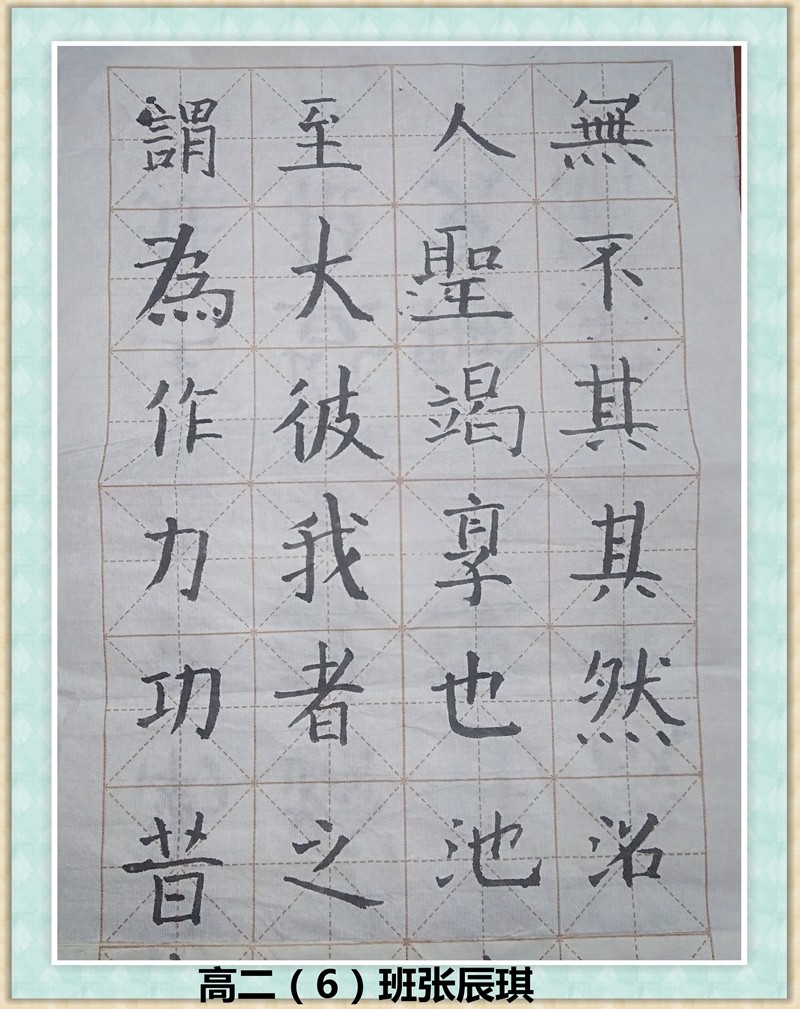 無不其其然
人聖竭享也池
至大彼我者之
謂為作力功昔
高二（6）班张辰琪